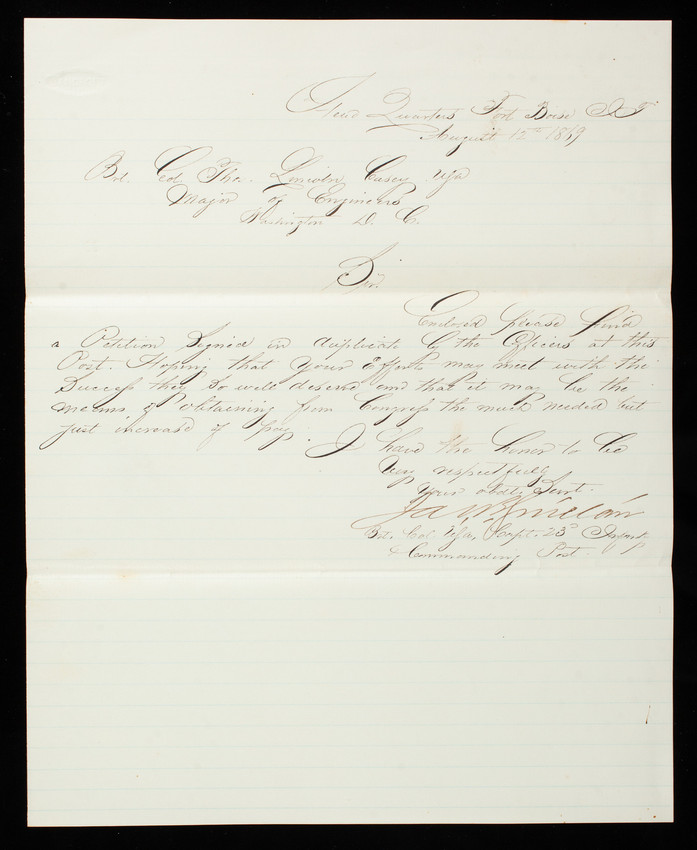 Head Quarters Fort Boise I T
August 12th 1869
Bvt Col Tho. Lincoln Casey USA
Major of Engineers
Washington D. C.
Sir.
Enclosed please find
a Petition Signed in duplicate by the Officers at this
Post. Hoping that your Efforts may meet with the
Success they so well deserve and that it may be the
means of obtaining from Congress the much needed but
just increase of pay.
I have the honor to be
Very respectfully
Your obdt. Servt.
Bvt. Col USA, Capt. 23d Infant
Commanding Post.